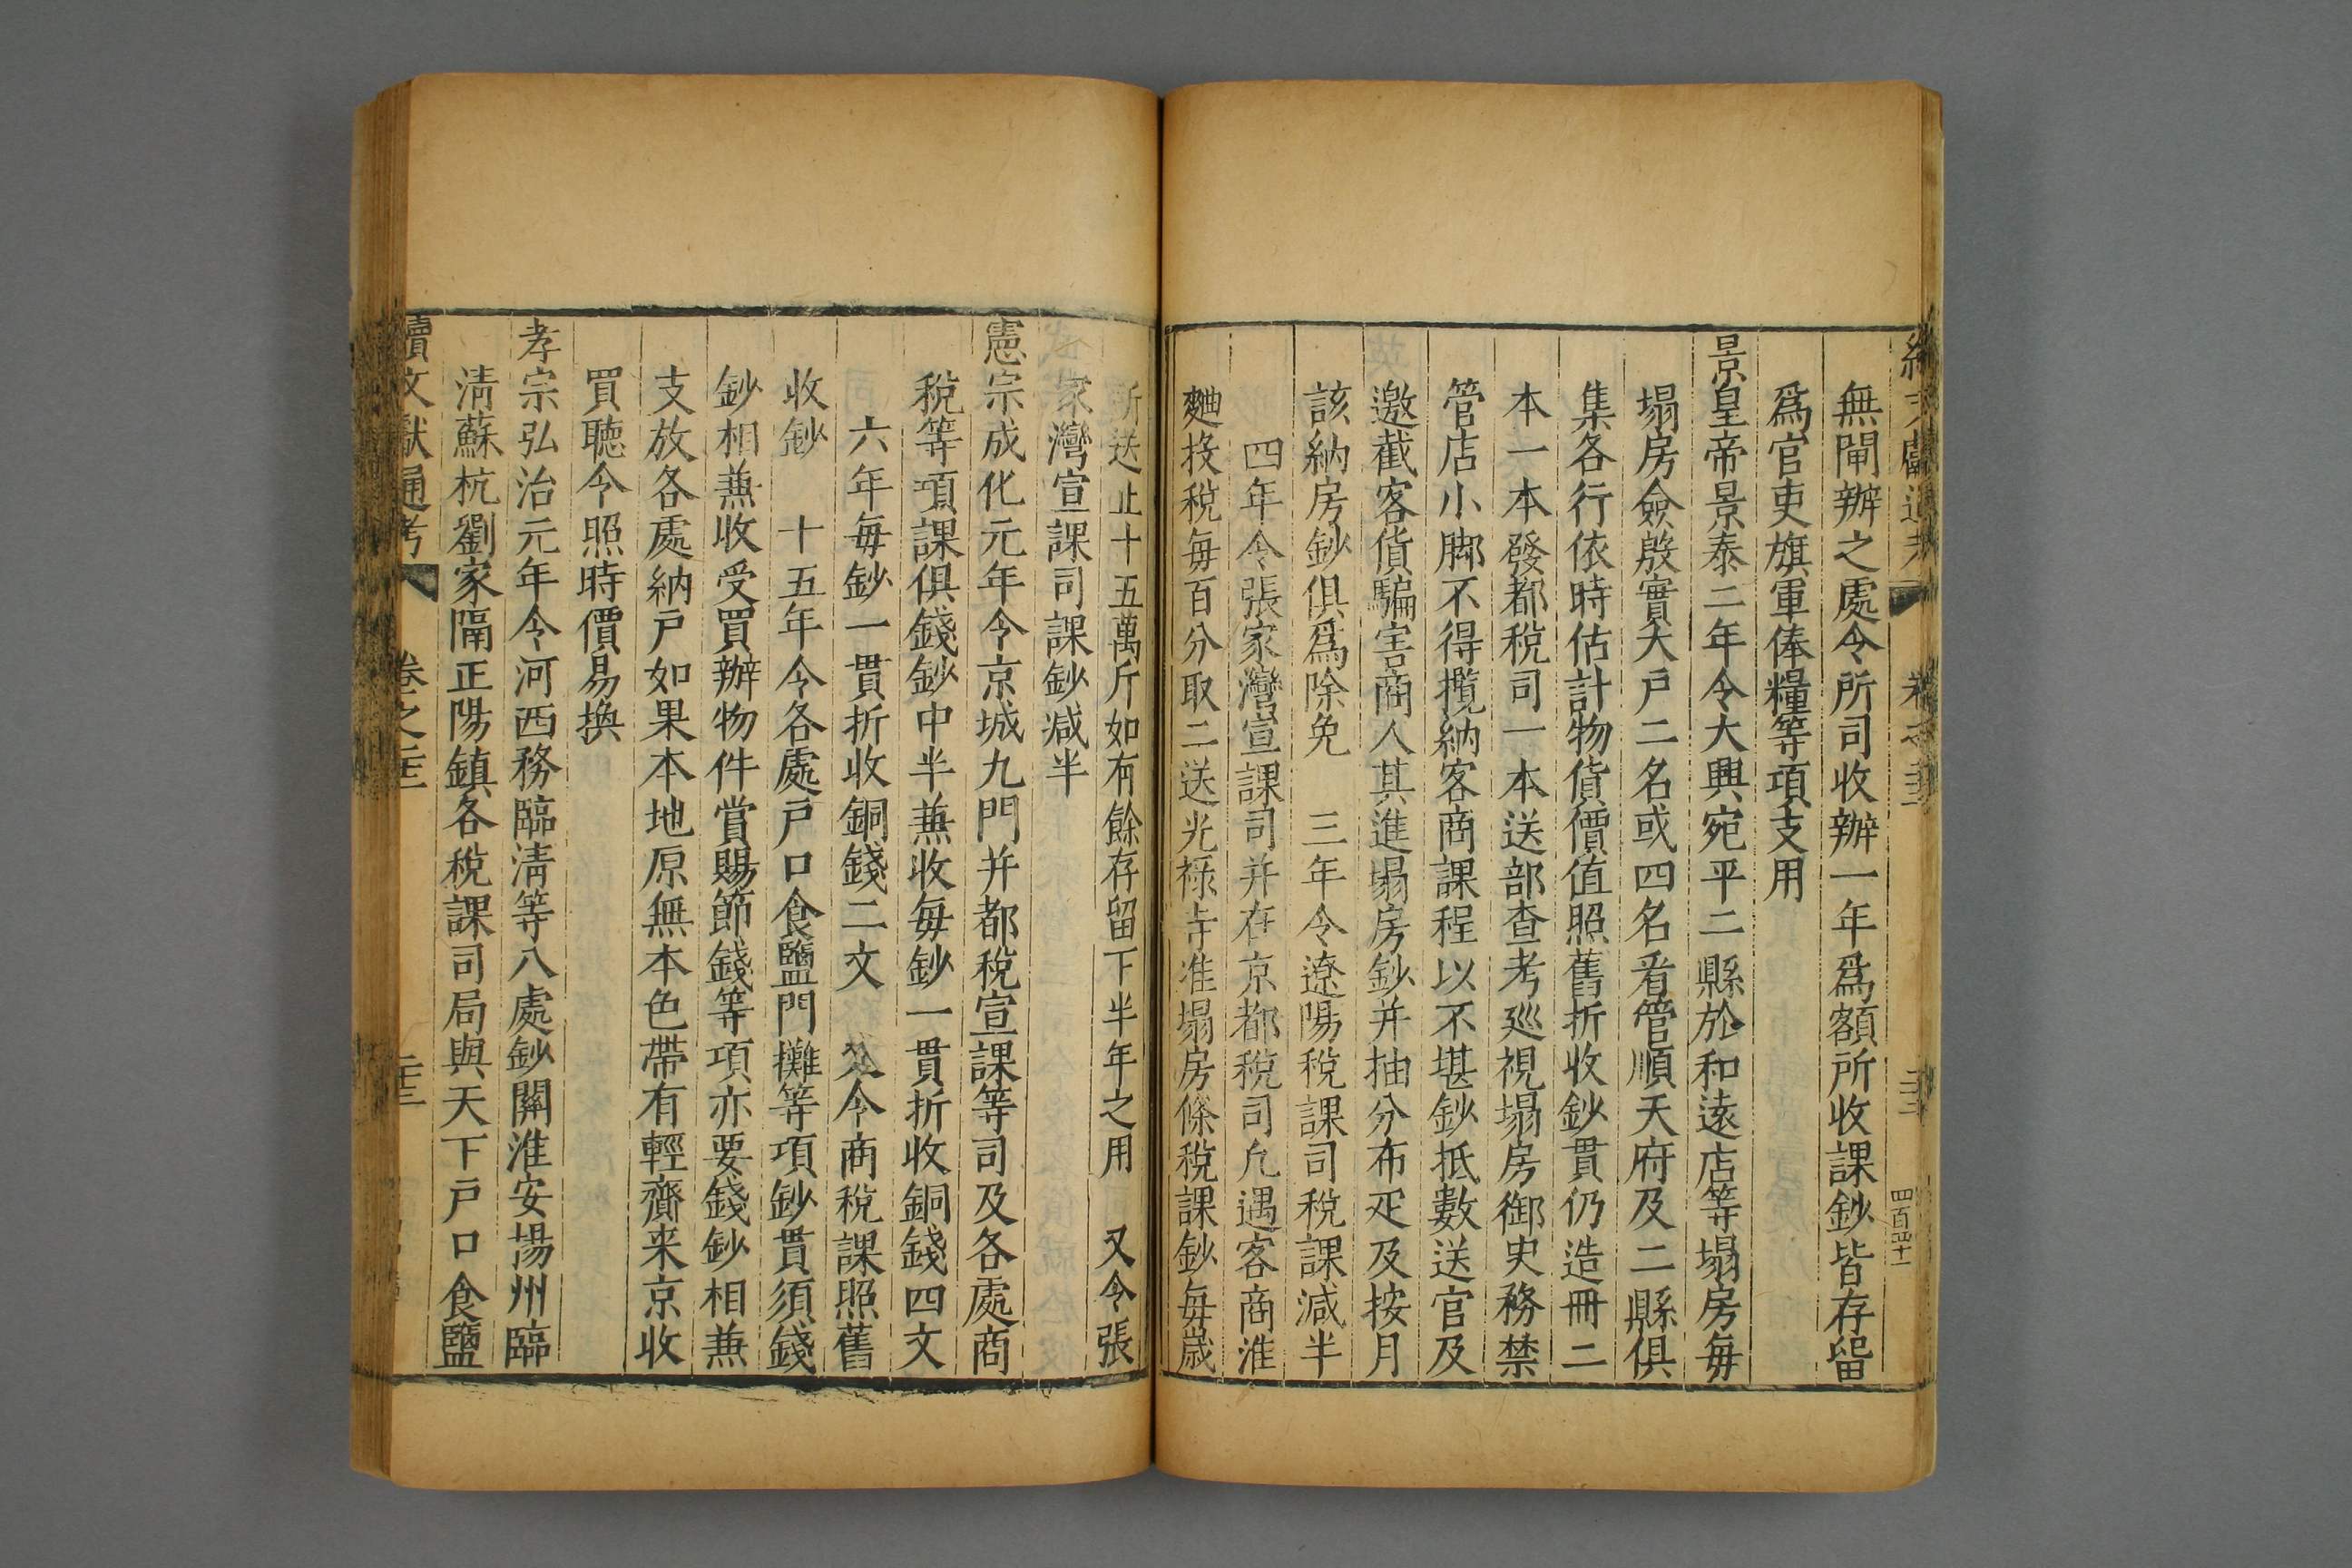 續文獻通考 卷之
四百四十一
無閘辦之處令所司收辦一年爲額所收課鈔皆存留
爲官吏旗軍俸糧等項支用
景皇帝景泰二年令大興宛平二縣於和遠店等塌房每
塌房僉殷實大戶二名或四名看管順天府及二縣俱
集各行依時估計物貨價值照舊折收鈔貫仍造冊二
本一本發都稅司一本送部查考廵視塌房御史務禁
管店小脚不得攬納客商課程以不堪鈔抵數送官及
邀截客貨騙害商人其進塌房鈔并抽分布疋及按月
該納房鈔俱爲除免　三年令遼陽稅課司稅課減半
四年令張家灣宣課司并在京都稅司凢遇客商淮
麯投稅每百分取二送光祿寺准塌房條稅課鈔每歲
所送止十五萬斤如有餘存留下半年之用　又令張
家灣宣課司課鈔減半
憲宗成化元年令京城九門并都稅宣課等司及各處商
稅等項課俱錢鈔中半兼收每鈔一貫折收銅錢四文
六年每鈔一貫折收銅錢二文　又令商稅課照舊
收鈔　十五年令各處戶口食鹽門攤等項鈔貫須錢
鈔相兼收受買辦物件賞賜節錢等項亦要錢鈔相兼
支放各處納戶如果本地原無本色帶有輕齎来京收
買聽令照時價易換
孝宗弘治元年令河西務臨清等八處鈔關淮安揚州臨
清蘇杭劉家隔正陽鎮各稅課司局與天下戶口食鹽
續文獻通考 卷之